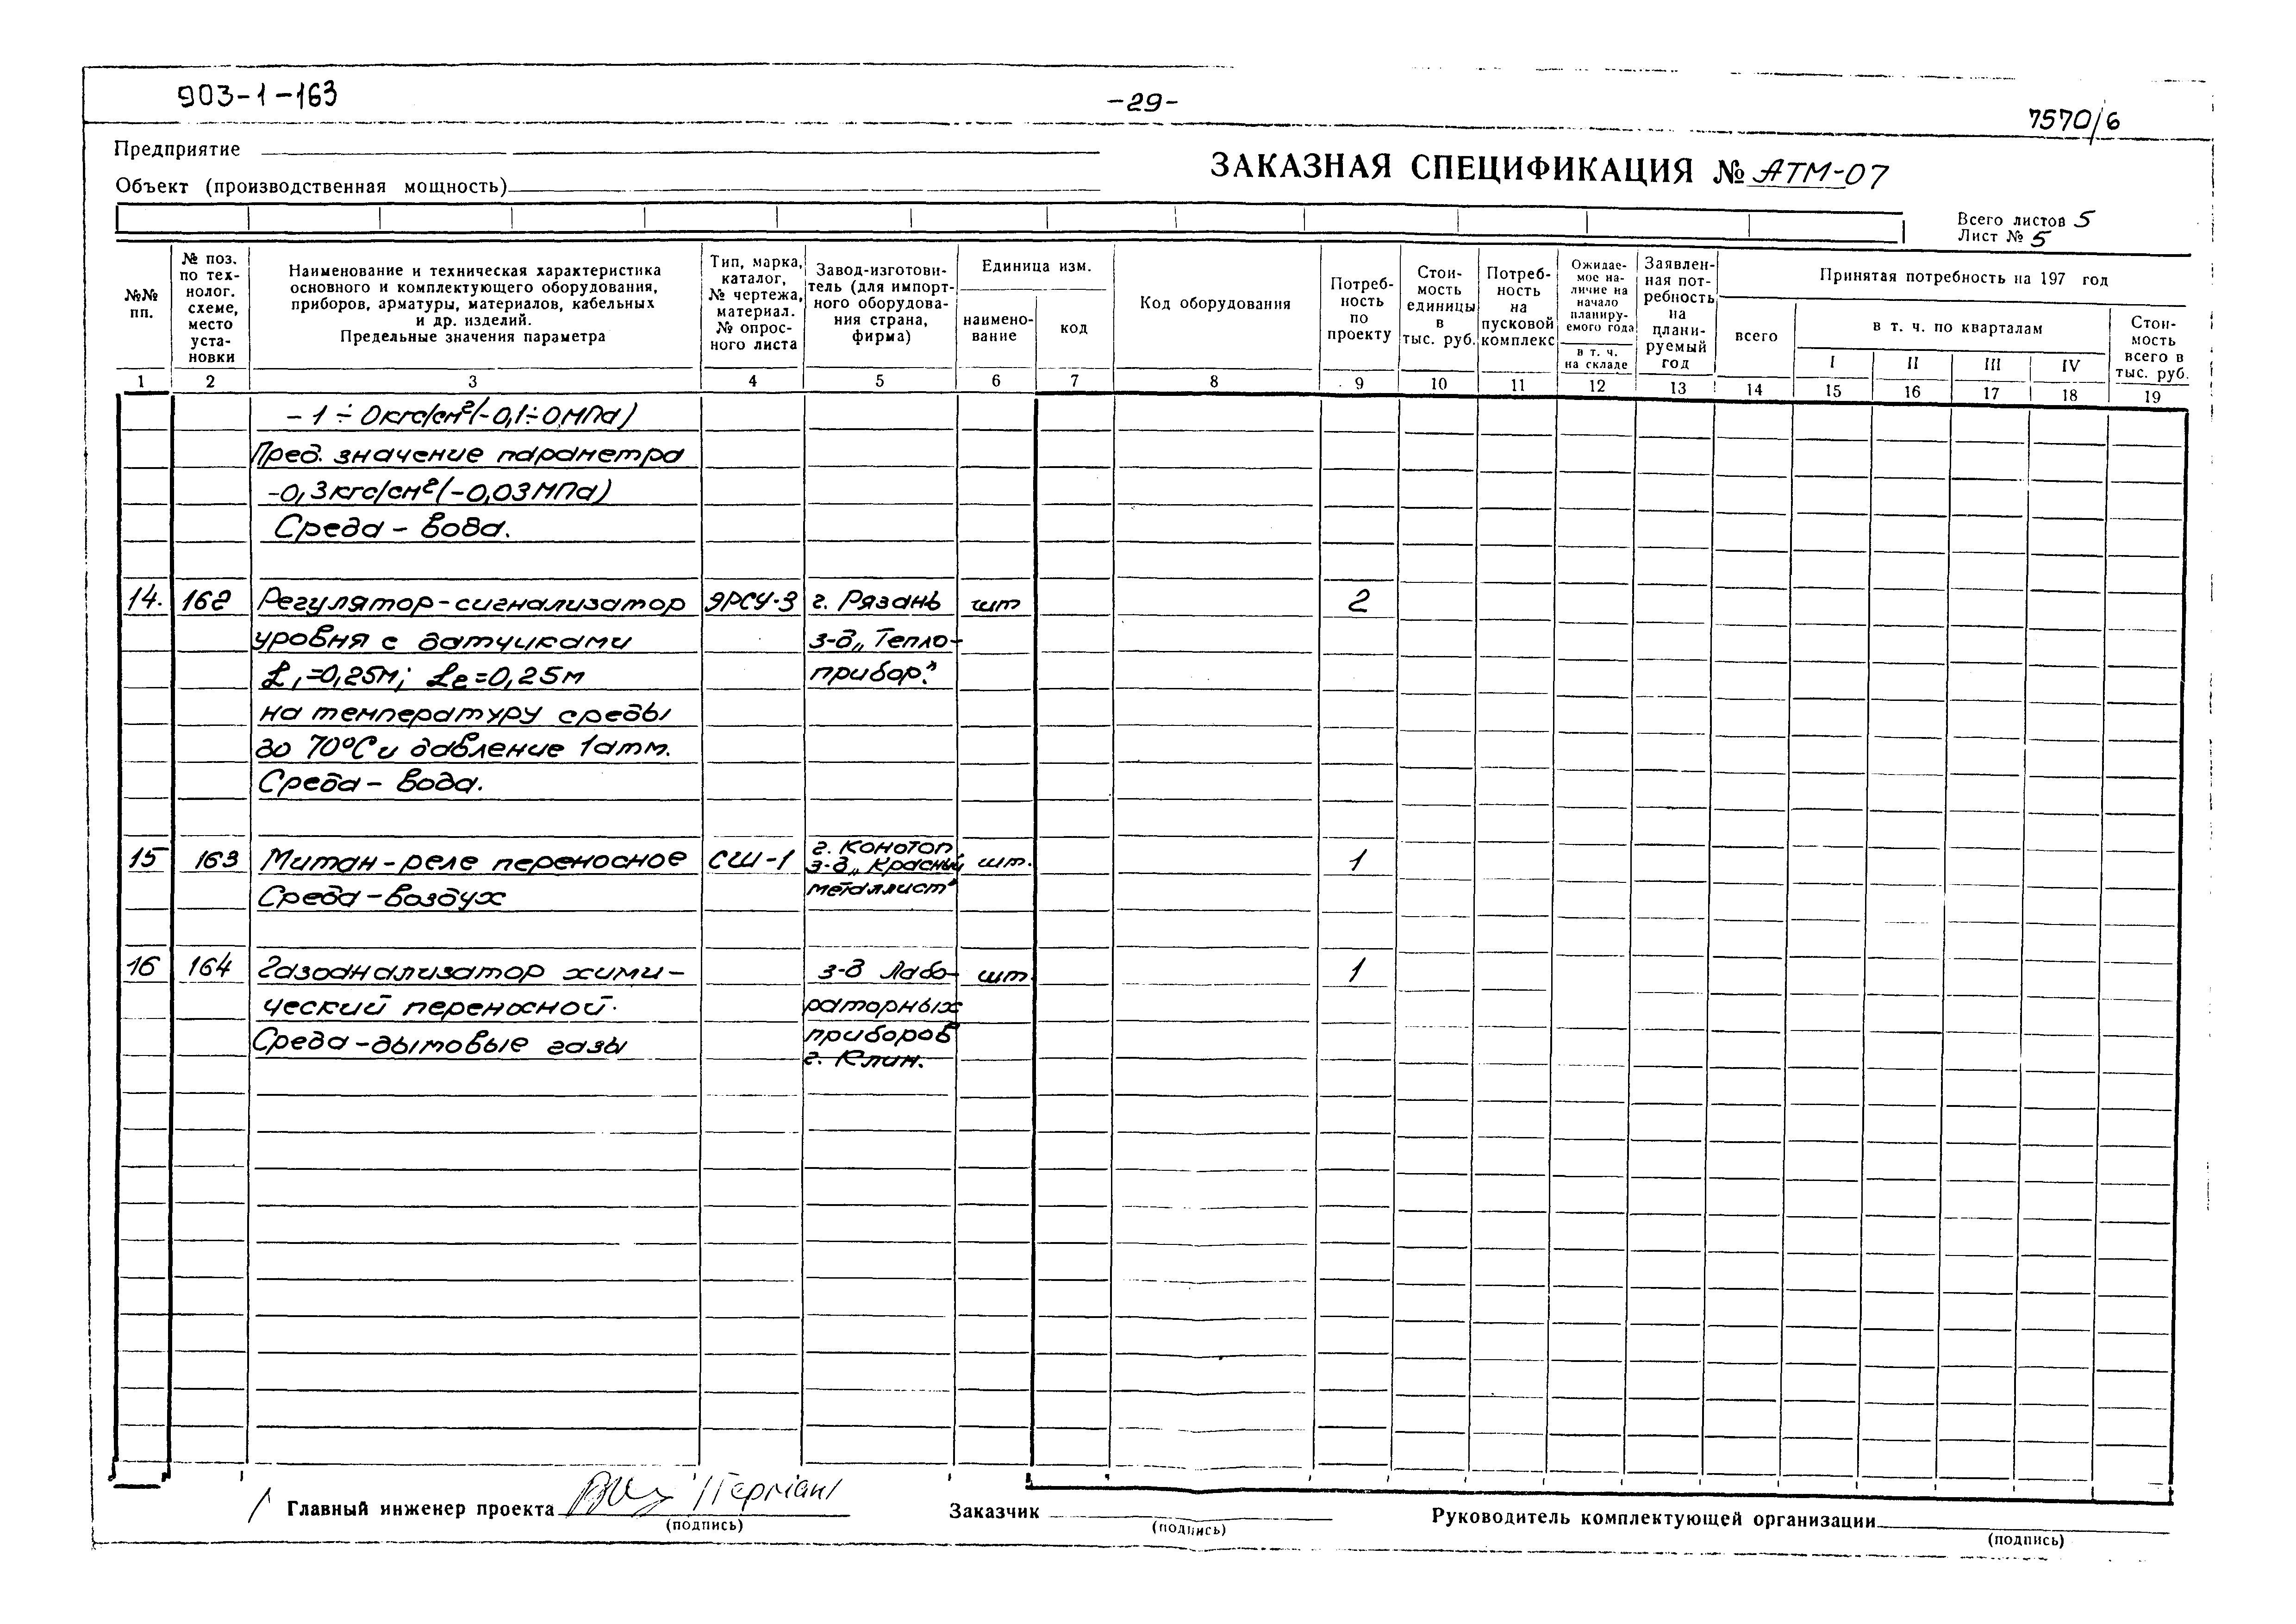 903-1-163
-29-
7570/6
Предприятие
ЗАКАЗНАЯ СПЕЦИФИКАЦИЯ № АТМ-07
Объект (производственная мощность)
Всего листов 5
Лист № 5
№№
пп.
№ поз.
по тех-
нолог.
схеме,
место
уста-
новки
Наименование и техническая характеристика
основного и комплектующего оборудования,
приборов, арматуры, материалов, кабельных
и др. изделий.
Предельные значения параметра
Тип, марка,
каталог,
№ чертежа,
материал.
№ опрос-
ного листа
Завод-изготови-
тель (для импорт-
ного оборудова-
ния страна,
фирма)
Единица изм.
наимено-
вание
код
Код оборудования
Потреб-
ность
по
проекту
Стои-
мость
единицы
в
тыс. руб.
Потреб-
ность
на
пусковой
комплекс
Ожидае-
мое на-
личие на
начало
планиру-
емого года
в т. ч.
на складе
Заявлен-
ная пот-
ребность
на
плани-
руемый
год
Принятая потребность на 197 год
всего
в т. ч. по кварталам
I II III IV
Стои-
мость
всего в
тыс. руб.
1 2 3 4 5 6 7 8 9 10 11 12 13 14 15 16 17 18 19
- 1 ÷ 0 кгс/см² (-0,1÷0 МПа)
Пред. значение параметра
-0,3 кгс/см² (-0,03 МПа)
Среда - вода.
14. 162 Регулятор-сигнализатор ЭРСУ-3 г. Рязань шт 2
уровня с датчиками з-д „Тепло-
L1=0,25м; L2=0,25м прибор."
на температуру среды
до 70°С и давление 1атм.
Среда - вода.
15 163 Митан-реле переносное СШ-1 г. Конотоп шт. 1
з-д „Красный
Среда - воздух металлист"
16 164 Газоанализатор хими- з-д Лабо- шт. 1
ческий переносной. раторных
Среда - дымовые газы приборов
г. Клин.
Главный инженер проекта
(подпись)
Заказчик
(подпись)
Руководитель комплектующей организации
(подпись)